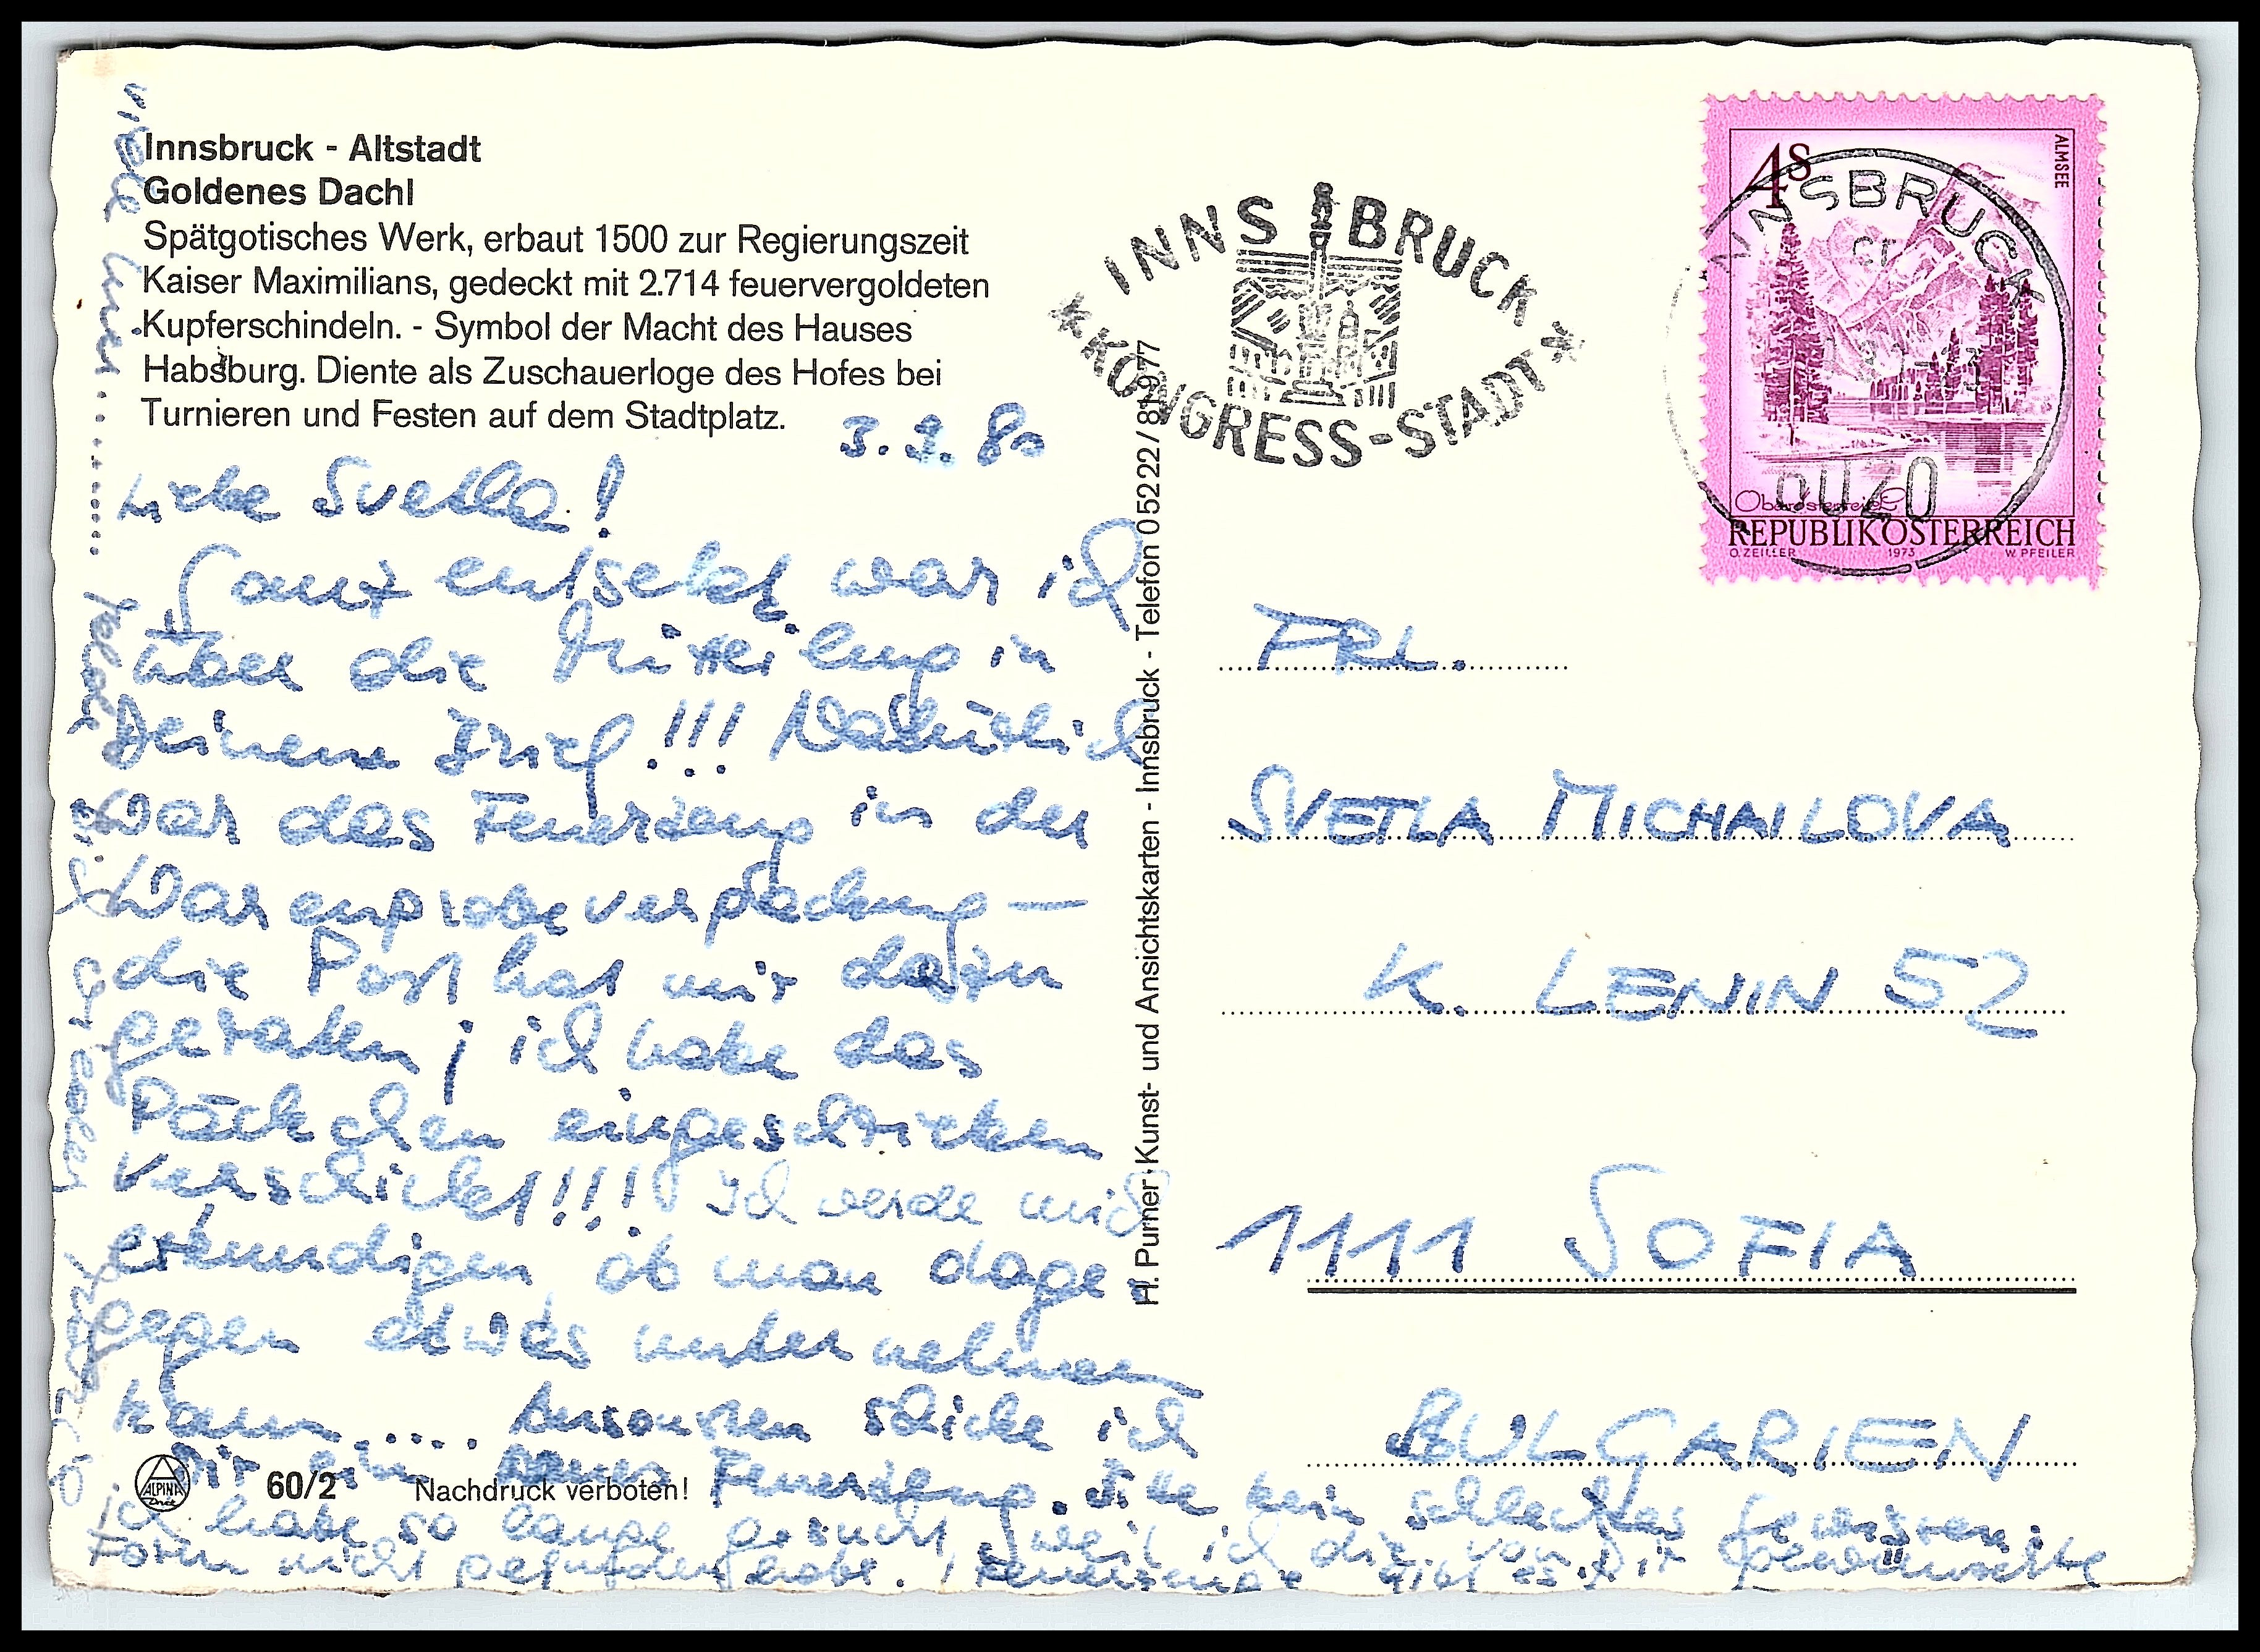 Innsbruck - Altstadt
Goldenes Dachl
Spätgotisches Werk, erbaut 1500 zur Regierungszeit
Kaiser Maximilians, gedeckt mit 2.714 feuervergoldeten
Kupferschindeln. - Symbol der Macht des Hauses
Habsburg. Diente als Zuschauerloge des Hofes bei
Turnieren und Festen auf dem Stadtplatz.
3.9.80
Liebe Svetla!
Ganz entsetzt war ich
über die Mitteilung in
Deinem Brief!!! Natürlich
war das Feuerzeug in der
Warenprobeverpackung —
die Post hat mir dazu
geraten; ich habe das
Päckchen eingeschrieben
verschickt!!! Ich werde mich
erkundigen ob man dage
gegen etwas unternehmen
kann .... Ansonsten schicke ich
Dir ein neues Feuerzeug. Bitte kein schlechtes Gewissen:
ich habe so lange gesucht, weil ich die von Dir gewünschte
Form nicht gefunden habe. Feuerzeuge gibt es
viele
60/2
Nachdruck verboten!
ALPINA
H. Purner Kunst- und Ansichtskarten - Innsbruck - Telefon 05222/81977
INNSBRUCK
KONGRESS-STADT
4S
ALMSEE
INNSBRUCK
6020
Oberösterreich
REPUBLIK ÖSTERREICH
O. ZEILLER 1973 W. PFEILER
FRL.
SVETLA MICHAILOVA
K. LENIN 52
1111 SOFIA
BULGARIEN